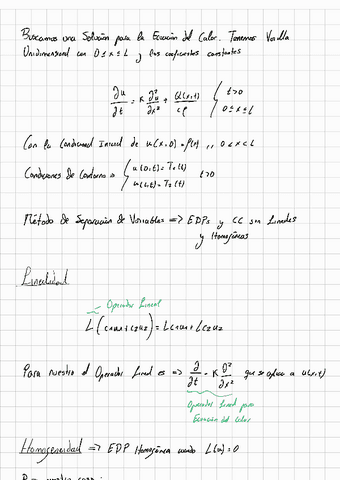 Buscamos una Solución para la Ecuación del Calor. Tenemos Varilla
Unidimensional con 0 ≤ x ≤ L y los coeficientes constantes
∂u/∂t = K ∂²u/∂x² + Q(x,t)/cρ { t>0
0 ≤ x ≤ L
Con la Condicional Inicial de u(x,0) = f(x) ,, 0 ≤ x ≤ L
Condiciones De Contorno { u(0,t) = T₁(t)
u(L,t) = T₂(t) t>0
Método De Separación de Variables => EDPs y CC son Lineales
y Homogéneas
Linealidad
Operador Lineal
L(C₁u₁+C₂u₂) = LC₁u₁+LC₂u₂
Para nuestro el Operador Lineal es => ∂/∂t - K ∂²/∂x² que se aplica a u(x,t)
Operador Lineal para
Ecuación del Calor
Homogeneidad => EDP Homogénea cuando L(u)=0